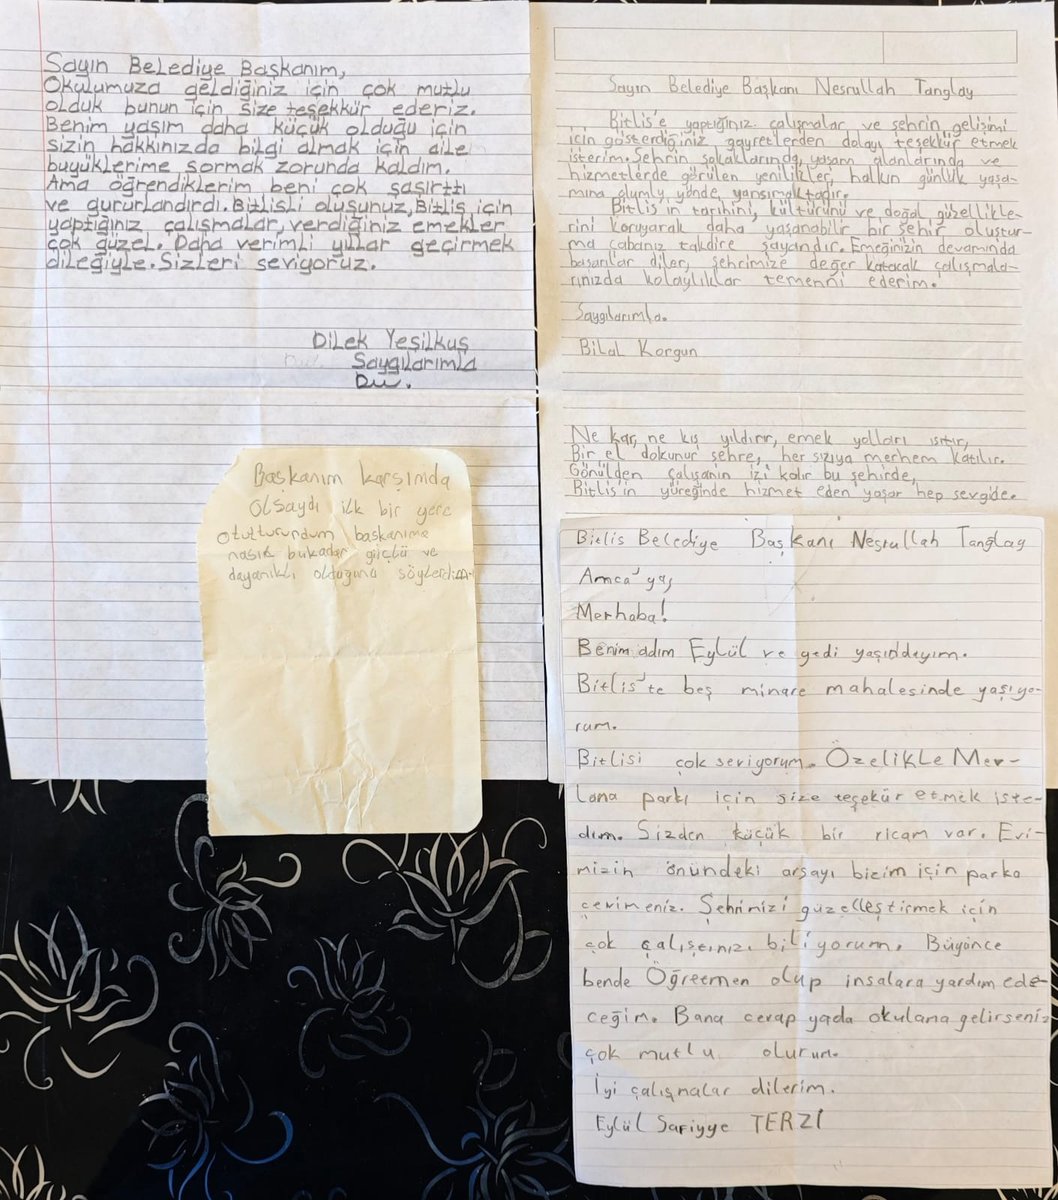 Sayın Belediye Başkanım,
Okulumuza geldiğiniz için çok mutlu
olduk bunun için size teşekkür ederiz.
Benim yaşım daha küçük olduğu için
sizin hakkınızda bilgi almak için aile
büyüklerime sormak zorunda kaldım.
Ama öğrendiklerim beni çok şaşırttı
ve gururlandırdı. Bitlisli oluşunuz, Bitlis için
yaptığınız çalışmalar, verdiğiniz emekler
çok güzel. Daha verimli yıllar geçirmek
dileğiyle. Sizleri seviyoruz.
Dilek Yeşilkuş
Saygılarımla
Başkanım karşınıda
olsaydı ilk bir yere
otutturundum başkanıma
nasıl bukadar güçlü ve
dayanıklı olduğunu söylerdim
Sayın Belediye Başkanı Nesrullah Tanglay
Bitlis'e yaptığınız çalışmalar ve şehrin gelişimi
için gösterdiğiniz gayretlerden dolayı teşekkür etmek
isterim. Şehrin sokaklarında, yaşam alanlarında ve
hizmetlerde görülen yenilikler, halkın günlük yaşa-
mına olumlu yönde yansımaktadır.
Bitlis'in tarihini, kültürünü ve doğal güzellikle-
rini koruyarak daha yaşanabilir bir şehir oluştur-
ma çabanız takdire şayandır. Emeğinizin devamında
başarılar diler, şehrimize değer katacak çalışmala-
rınızda kolaylıklar temenni ederim.
Saygılarımla.
Bilal Korgun
Ne kar, ne kış yıldırır, emek yolları ısıtır,
Bir el dokunur şehre, her sızıya merhem katılır.
Gönülden çalışanın izi kalır bu şehirde,
Bitlis'in yüreğinde hizmet eden yaşar hep sevgide.
Bitlis Belediye Başkanı Nesrullah Tanglay
Amca'ya;
Merhaba!
Benim adım Eylül ve yedi yaşındayım.
Bitlis'te beş minare mahalesinde yaşıyo-
rum.
Bitlisi çok seviyorum. Özelikle Mev-
lana parkı için size teşekür etmek iste-
dim. Sizden küçük bir ricam var. Evi-
mizin önündeki arsayı bizim için parka
çevirmeniz. Şehrimizi güzelleştirmek için
çok biliyorum. Büyünce
bende Öğretmen olup insalara yardım ede-
ceğim. Bana cevap yada okulama gelirseniz
çok mutlu olurum.
İyi çalışmalar dilerim.
Eylül Safiyye TERZİ